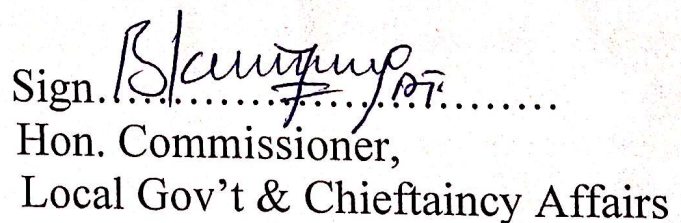 Sign...............................
Hon. Commissioner,
Local Gov't & Chieftaincy Affairs